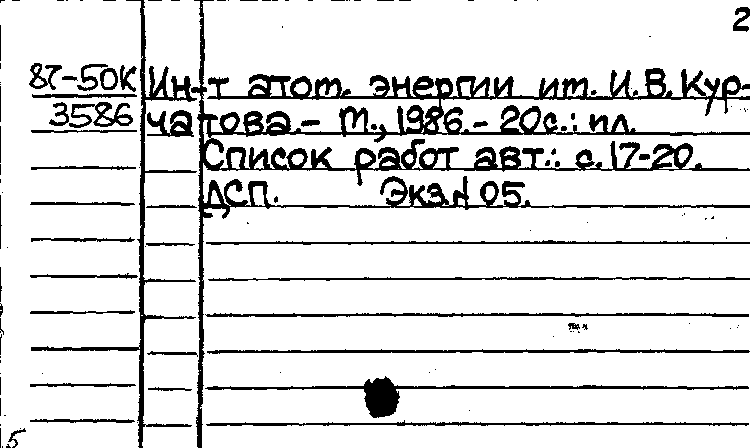 2
87-50К Ин-т атом. энергии им. И.В. Кур-
3586 чатова.- М., 1986.- 20с.: ил.
Список работ авт.: с. 17-20.
ДСП. Экз.N 05.
5